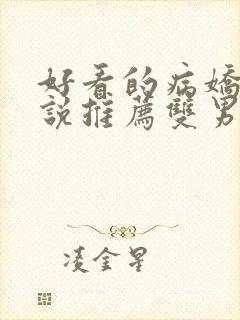 好看的病嬌
說推薦雙男
淩金星